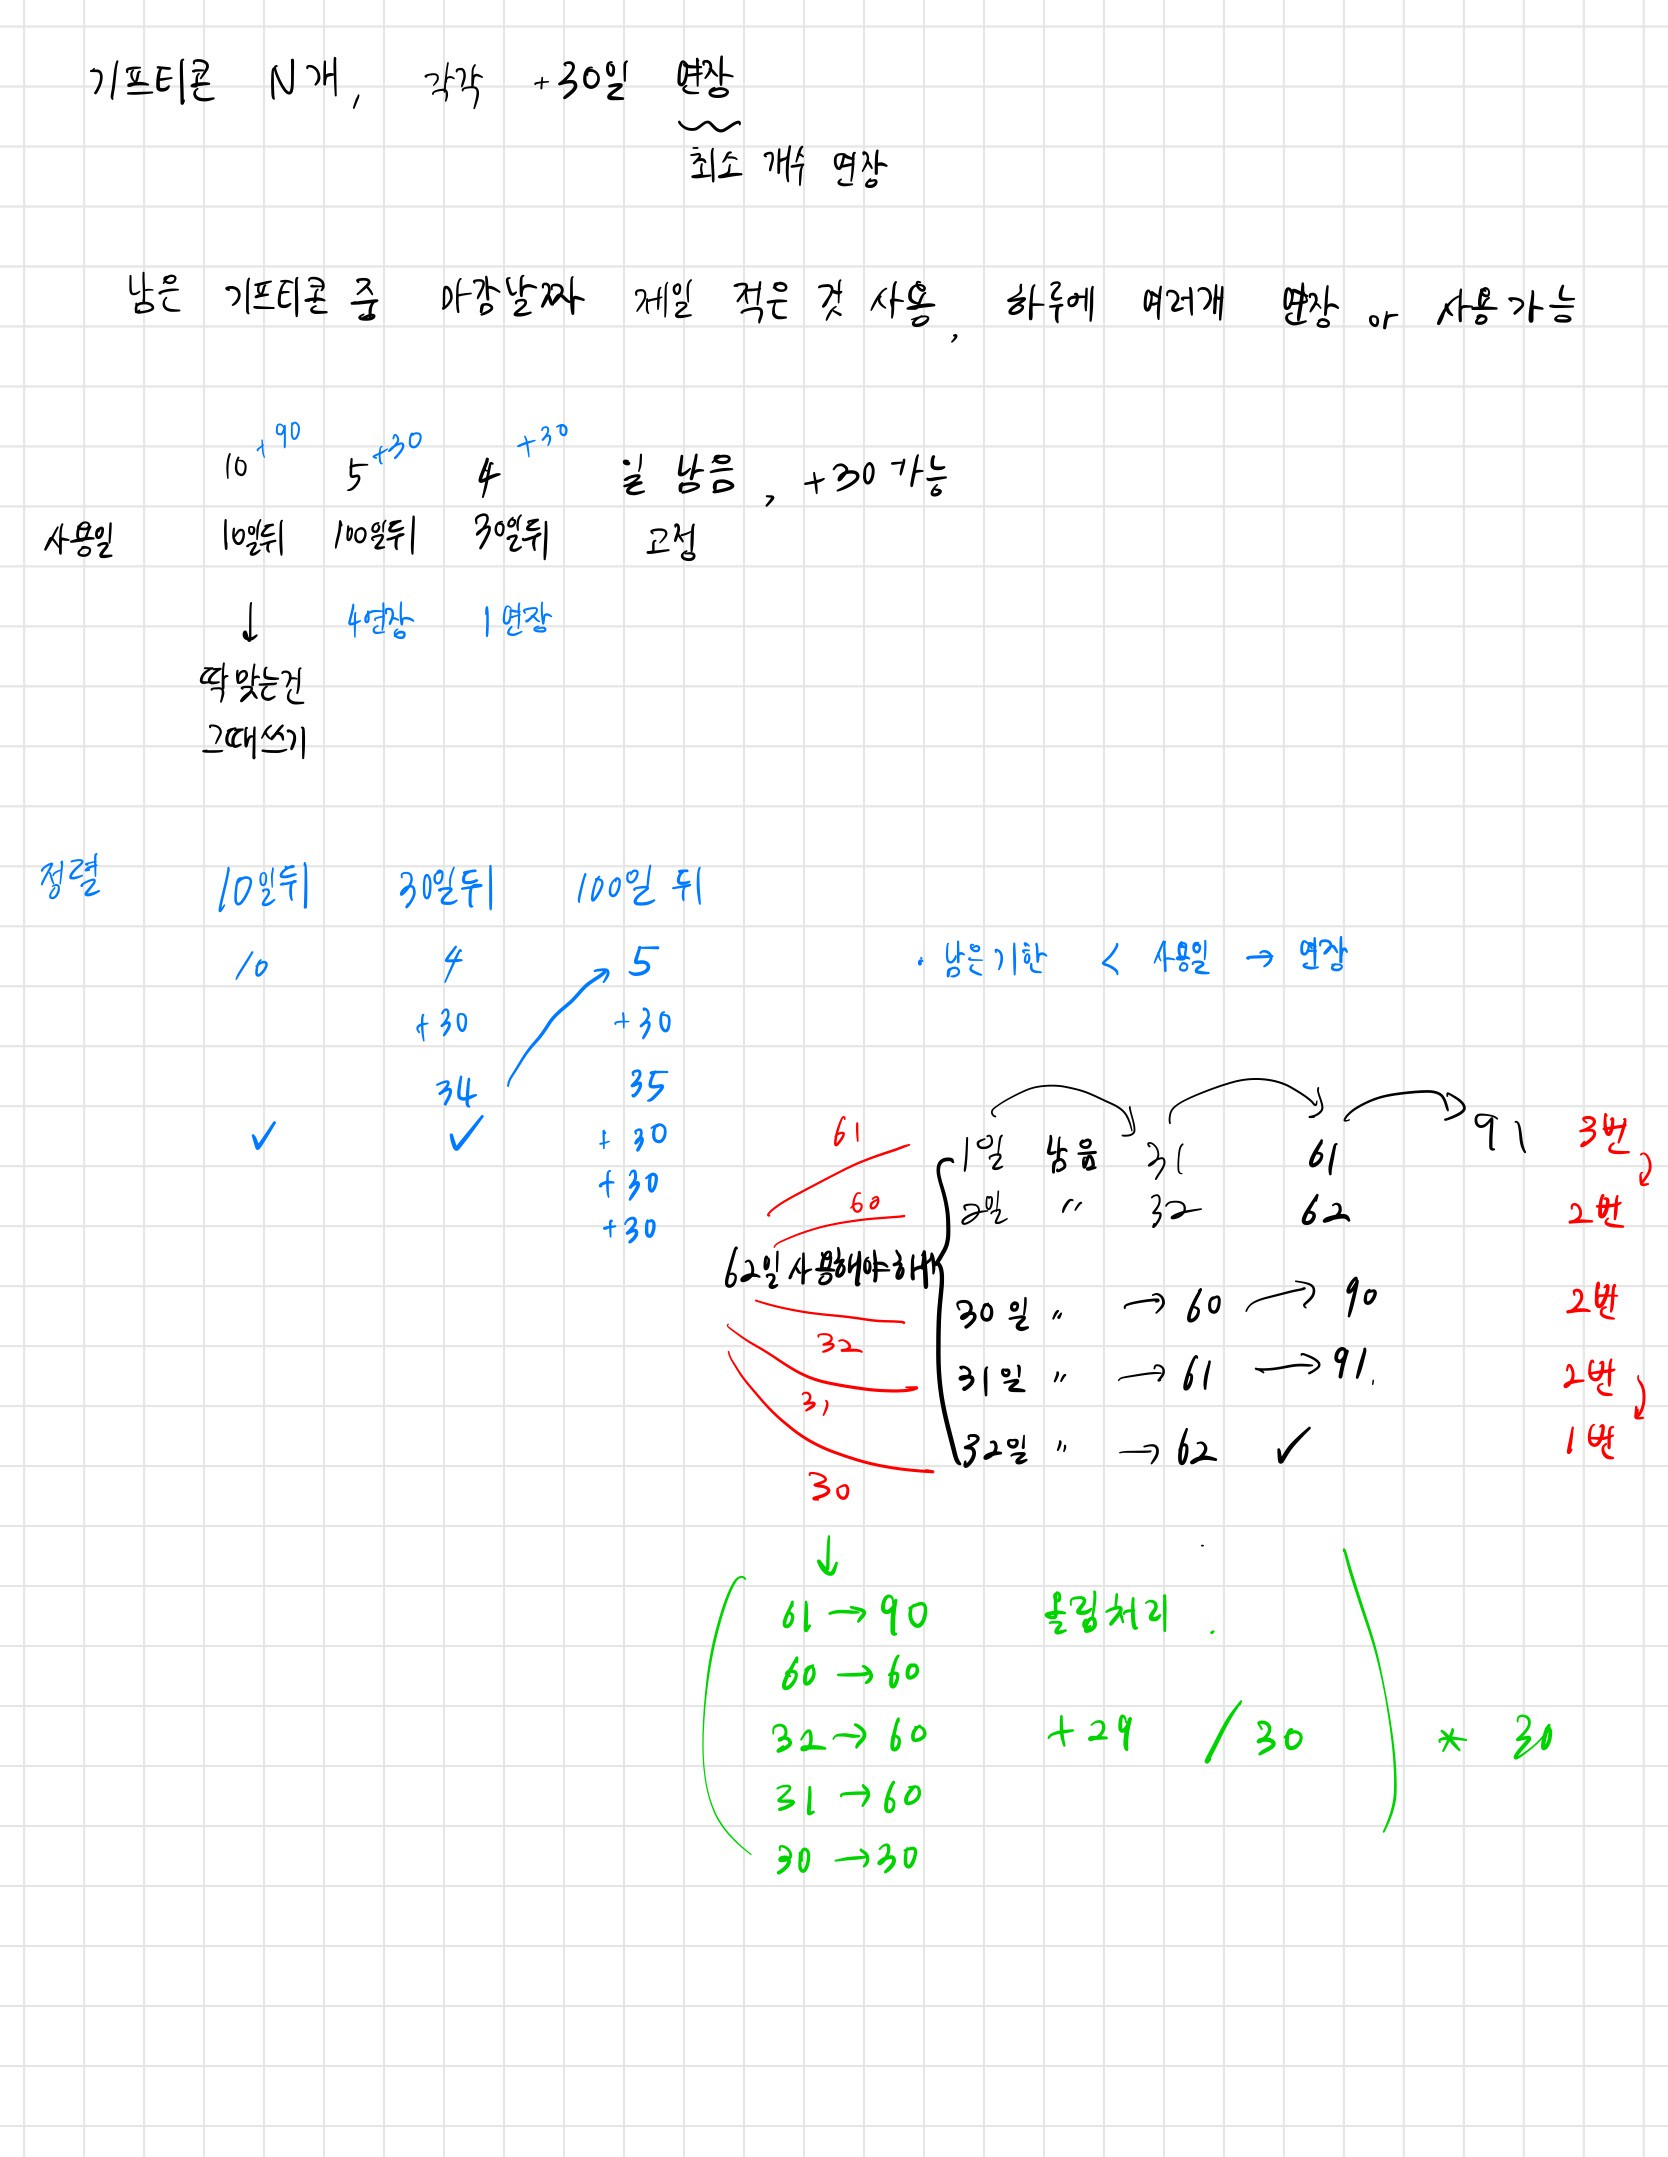 기프티콘 N개, 각각 +30일 연장
최소 개수 연장
남은 기프티콘 중 마감날짜 제일 적은 것 사용, 하루에 여러개 연장 or 사용 가능
10 +90 5 +30 4 +30 일 남음, +30 가능
사용일 10일뒤 100일뒤 30일뒤 고정
↓ 4연장 1연장
딱 맞는건
그때쓰기
정렬 10일뒤 30일뒤 100일 뒤
10 4 5 · 남은기한 < 사용일 → 연장
+30 +30
34 35
✓ ✓ +30
+30
+30
61 1일 남음 31 61 91 3번
60 2일 〃 32 62 2번
62일 사용해야해
32 30일 〃 → 60 → 90 2번
31 31일 〃 → 61 → 91. 2번
30 32일 〃 → 62 ✓ 1번
↓
( 61 → 90 올림처리.
60 → 60
32 → 60 +29 / 30 ) * 30
31 → 60
30 → 30